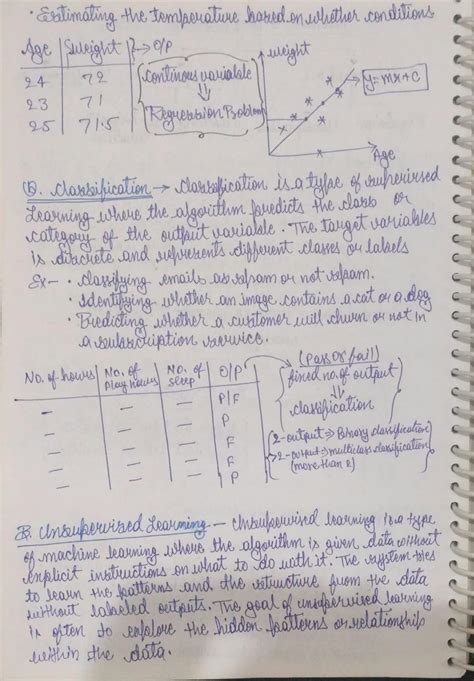 • Estimating the temperature based on whether conditions
Age | Weight } → O/P
24 | 72
23 | 71
25 | 71.5
Continous variable
⇓
Regression Problem
weight
y=mx+c
Age
b. Classification → Classification is a type of supervised
Learning where the algorithm predicts the class or
category of the output variable. The target variables
is discrete and represents different classes or labels
Ex- • Classifying emails as spam or not spam.
• Identifying whether an image contains a cat or a dog
• Predicting whether a customer will churn or not in
a subscription service.
No. of hours | No. of play hours | No. of sleep | O/P
— | — | — | P/F
— | — | — | P
— | — | — | F
— | — | — | F
— | — | — | P
— | — | — | F
(Pass or fail)
fixed no. of output
⇓
classification
(2-output ⇒ Binary classification)
(>2-output ⇒ multiclass classification)
(more than 2)
B. Unsupervized Learning — Unsupervized learning is a type
of machine learning where the algorithm is given data without
explicit instructions on what to do with it. The system tries
to learn the patterns and the structure from the data
without labeled outputs. The goal of unsupervised learning
is often to explore the hidden patterns or relationship
within the data.